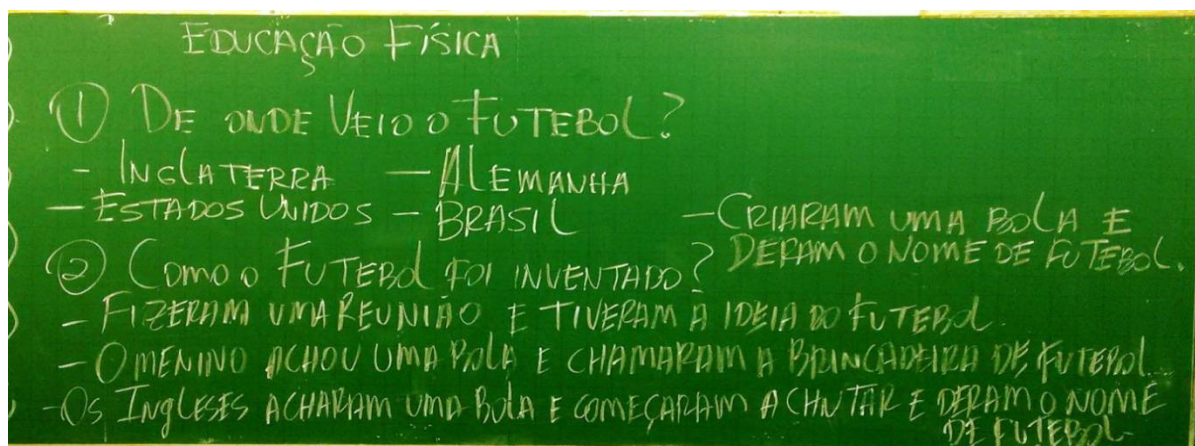 EDUCAÇÃO FÍSICA
① DE ONDE VEIO O FUTEBOL?
- INGLATERRA - ALEMANHA
- ESTADOS UNIDOS - BRASIL
- CRIARAM UMA BOLA E
DERAM O NOME DE FUTEBOL.
② COMO O FUTEBOL FOI INVENTADO?
- FIZERAM UMA REUNIÃO E TIVERAM A IDEIA DO FUTEBOL.
- O MENINO ACHOU UMA BOLA E CHAMARAM A BRINCADEIRA DE FUTEBOL.
- OS INGLESES ACHARAM UMA BOLA E COMEÇARAM A CHUTAR E DERAM O NOME
DE FUTEBOL